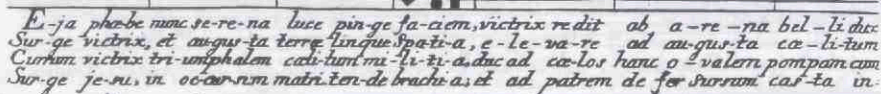 E-ja phœbe nunc se-re-na luce pin-ge fa-ciem, victrix redit ab a-re-na bel-li dux
Sur-ge victrix, et au-gus-ta terræ linque Spa-ti-a, e-le-va-re ad au-gus-ta cœ-li-tum
Currum victrix tri-umphalem cœli-tum mi-li-ti-a, duc ad cœ-los hanc o-valem pompam cum
Sur-ge je-su, in oc-cur-sum matri ten-de brachi-a; et ad patrem de fer sursum cas-ta in-